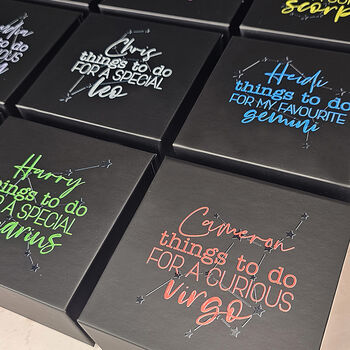 things to do
scorp
Chris
things to do
FOR A SPECIAL
leo
Heidi
things to do
FOR MY FAVOURITE
gemini
Harry
things to do
FOR A SPECIAL
arius
Cameron
things to do
FOR A CURIOUS
virgo